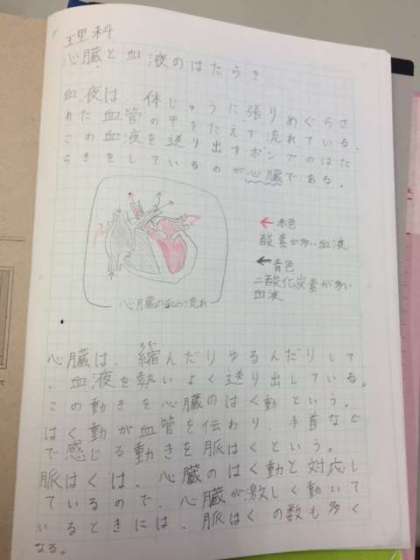 理科
心臓と血液のはたらき
血液は、体じゅうに張りめぐらさ
れた血管の中をたえず流れている。
この血液を送り出すポンプのはた
らきをしているのが心臓である。
←赤色
酸素が多い血液
←青色
二酸化炭素が多い
血液
心臓の血の流れ
心臓は、縮んだりゆるんだりして
、血液を勢いよく送り出している。
この動きを心臓のはく動という。
はく動が血管を伝わり、手首など
で感じる動きを脈はくという。
脈はくは、心臓のはく動と対応し
ているので、心臓が激しく動いて
いるときには、脈はくの数も多く
なる。